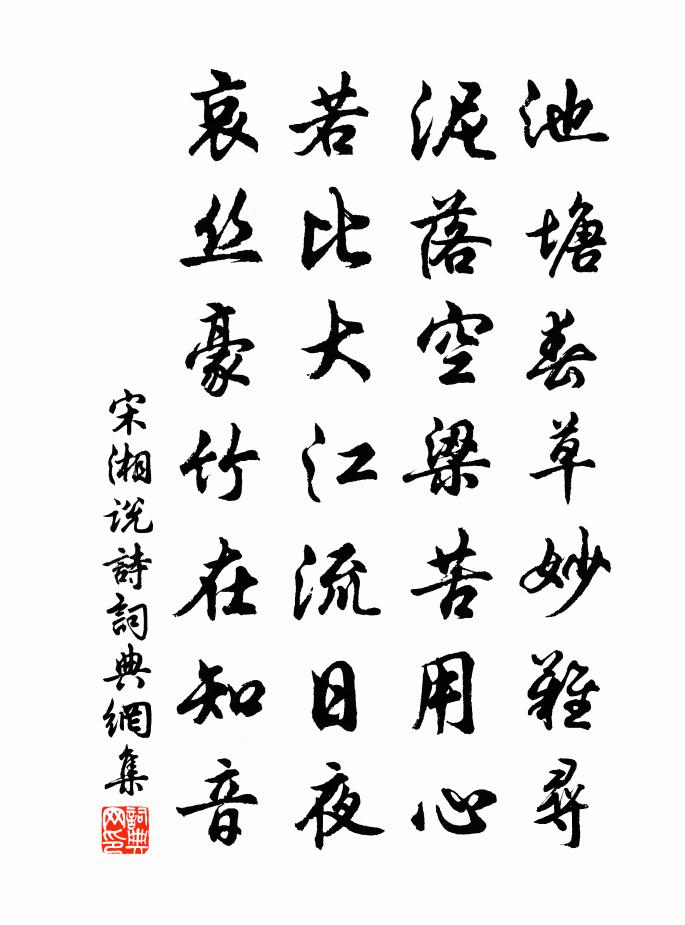 池塘春草妙難尋
泥落空梁苦用心
若比大江流日夜
哀丝豪竹在知音
宋湘说詩詞典網集
詞典网印